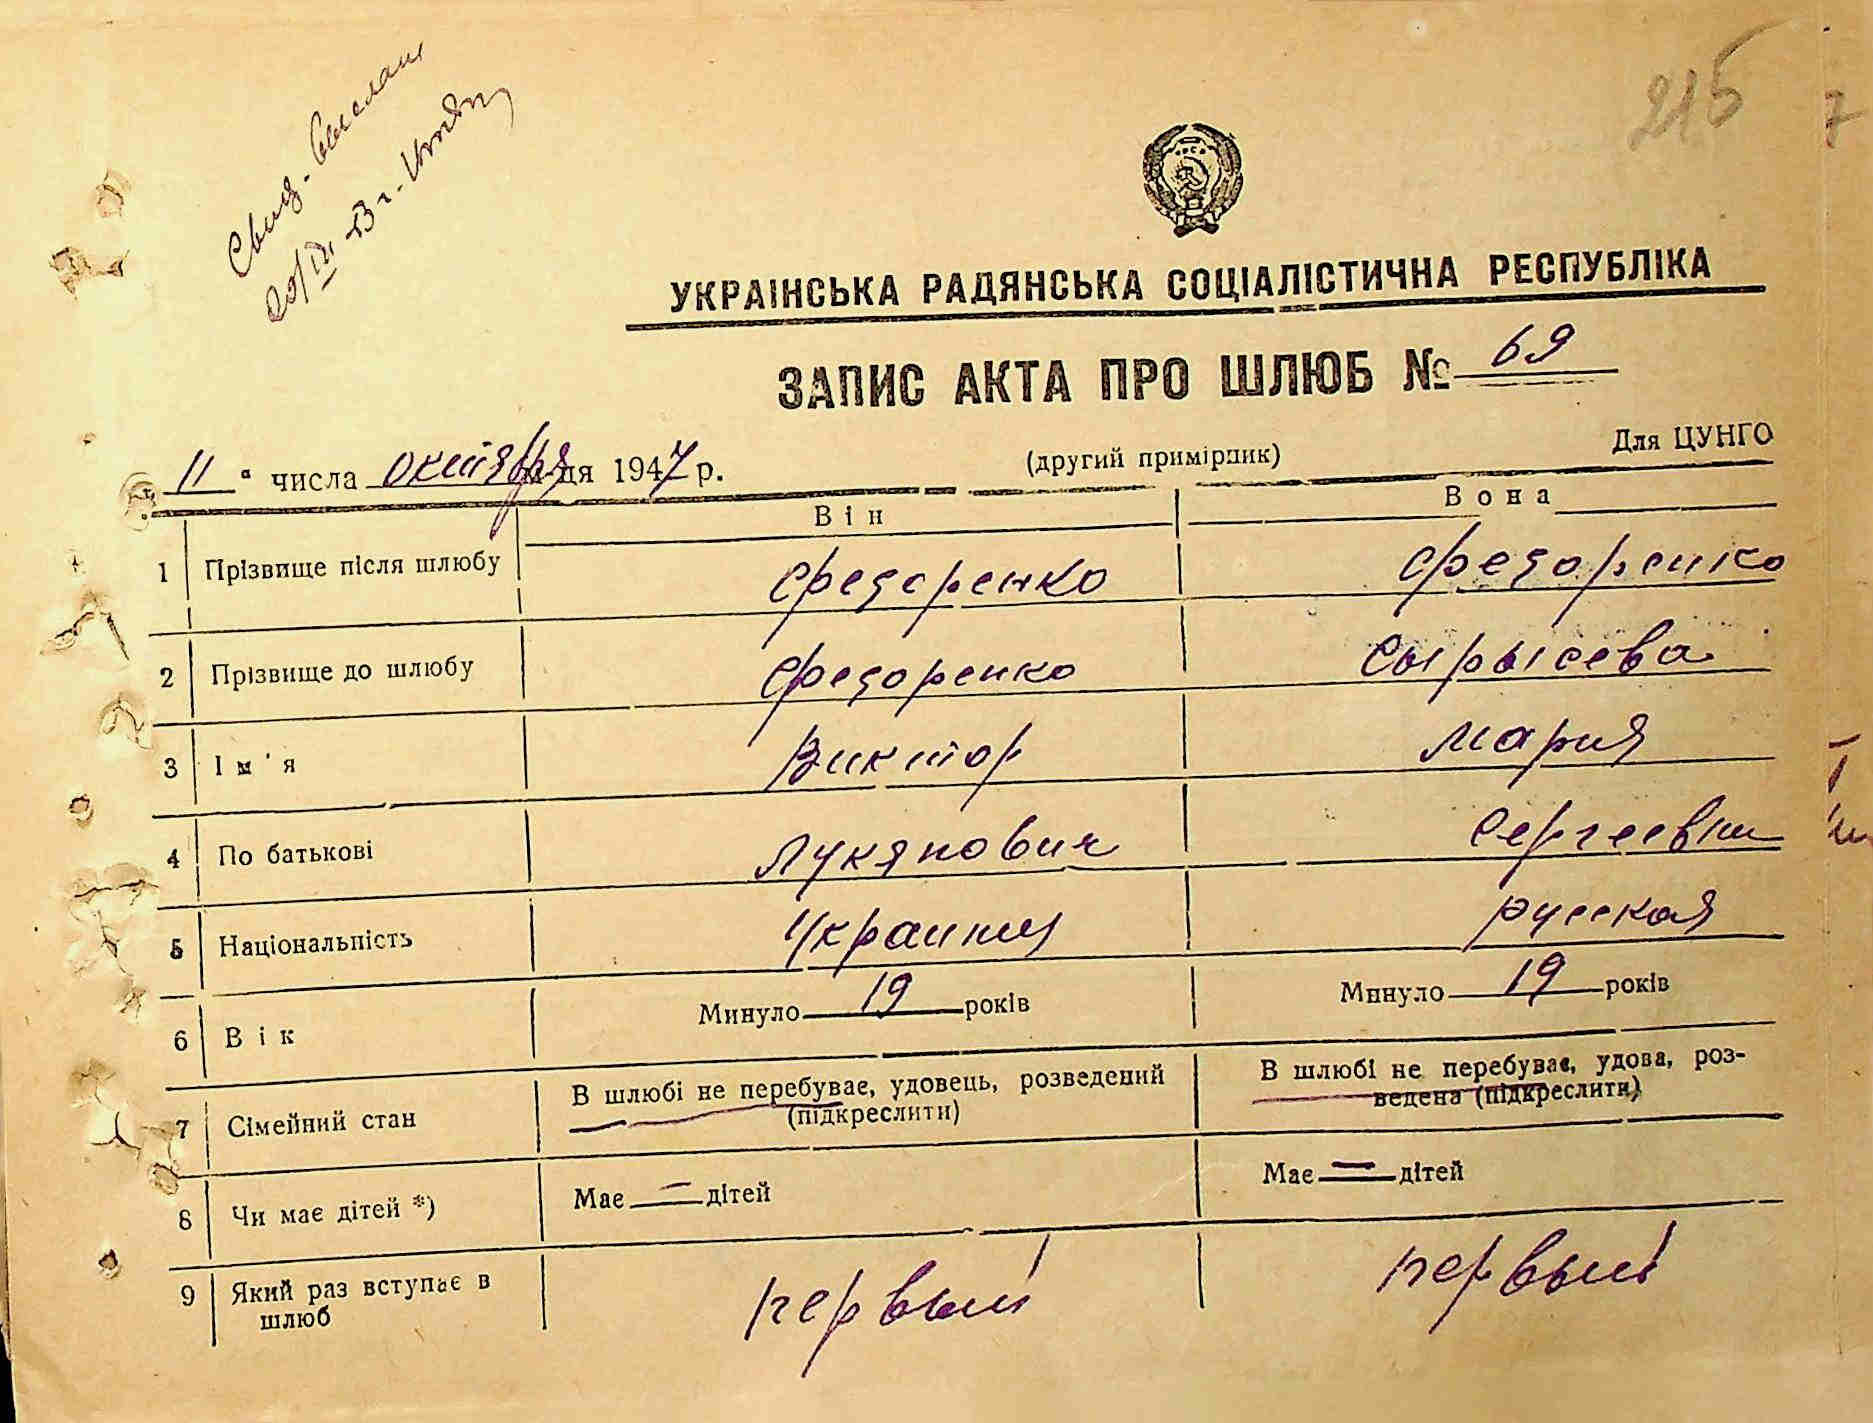 215
7
Свид.
УКРАІНСЬКА РАДЯНСЬКА СОЦІАЛІСТИЧНА РЕСПУБЛІКА
ЗАПИС АКТА ПРО ШЛЮБ № 69
11 " числа октября м-ця 1947 р. (другий примірник) Для ЦУНГО
Він Вона
1 Прізвище після шлюбу Федоренко Федоренко
2 Прізвище до шлюбу Федоренко Сырысева
3 Ім'я Виктор Мария
4 По батькові Лукянович Сергеевн
5 Національність Украинец русская
6 Вік Минуло 19 років Минуло 19 років
7 Сімейний стан В шлюбі не перебуває, удовець, розведений (підкреслити) В шлюбі не перебуває, удова, розведена (підкреслити)
8 Чи має дітей *) Має — дітей Має — дітей
9 Який раз вступає в шлюб первый первый